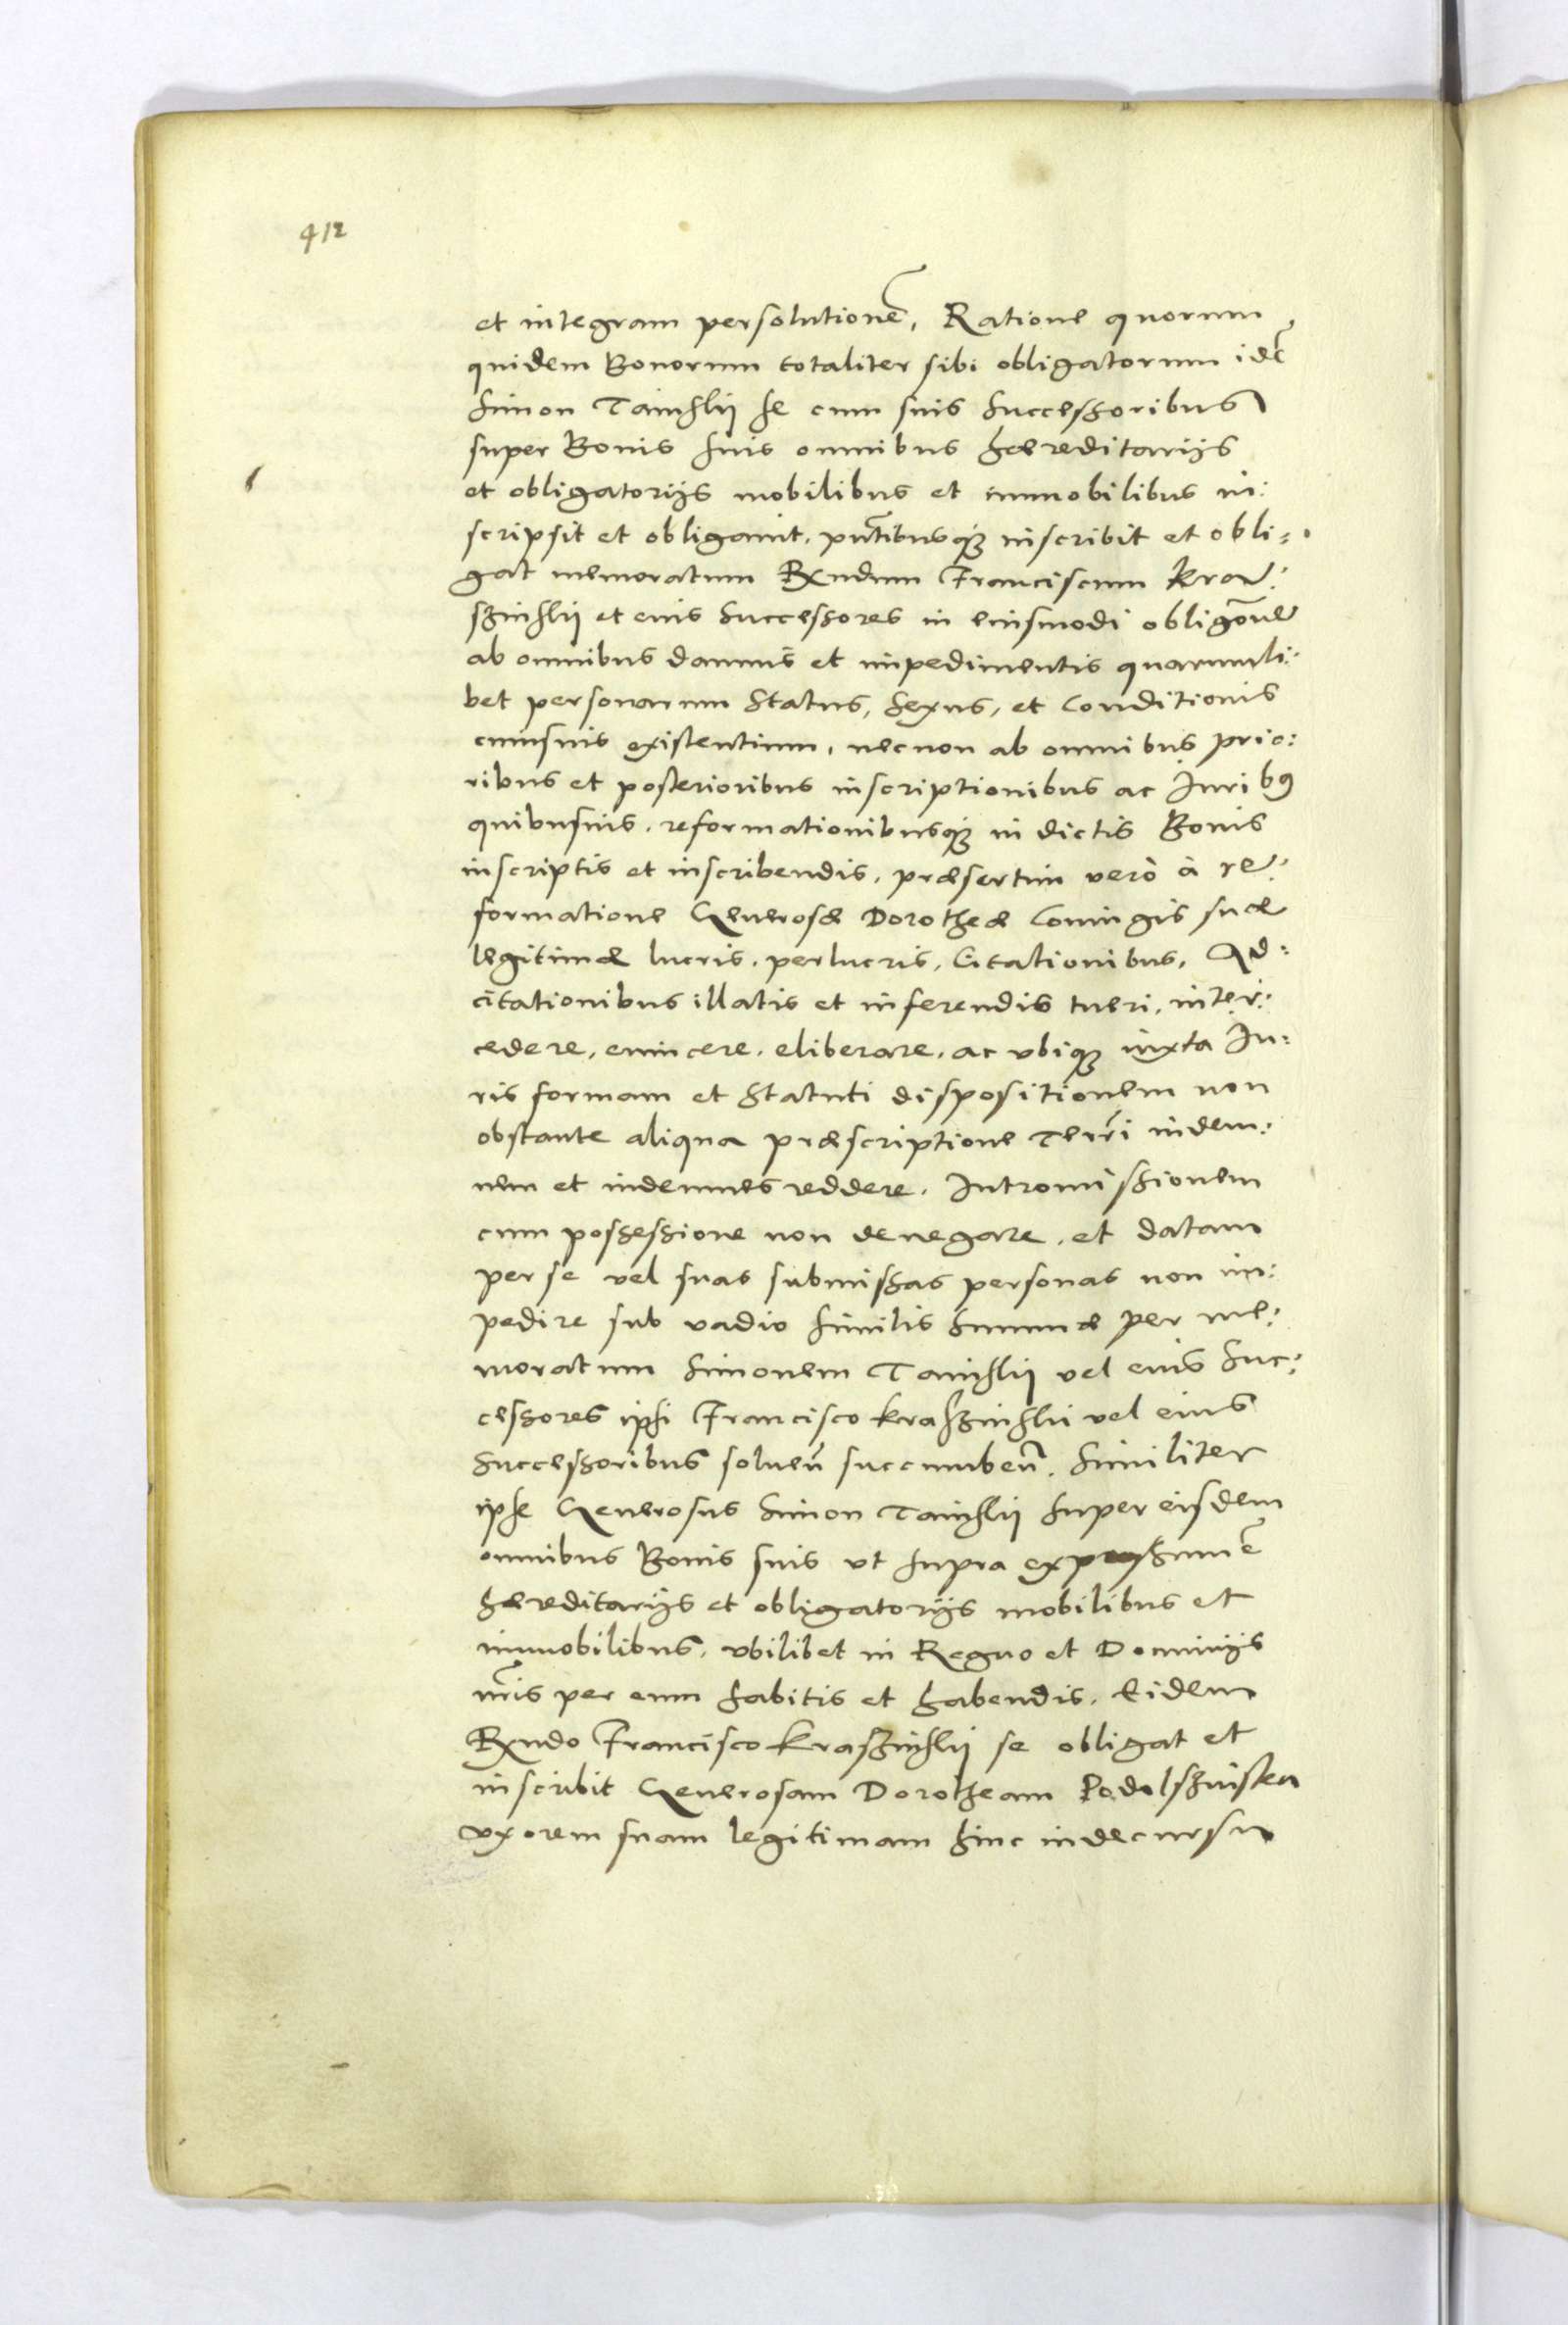 412
et integram persolutionē, Ratione quorum
quidem Bonorum totaliter sibi obligatorum idē
Simon Tainskij se cum suis Successoribus
super Bonis suis omnibus hæreditarijs
et obligatorijs mobilibus et immobilibus in:
scripsit et obligauit, pntibusq; inscribit et obli:
gat memoratum Rxndum Franciscum Kra:
szinskij et eius Successores in eiusmodi obligōne
ab omnibus damnis et impedimentis quarumli:
bet personarum Status, Sexus, et Conditionis
cuiusuis existentium, necnon ab omnibus prio:
ribus et posterioribus inscriptionibus ac Juribꝰ
quibusuis, reformationibusq; in dictis Bonis
inscriptis et inscribendis, præsertim verò à re:
formatione Generosæ Dorotheæ Coniugis suæ
legitimæ lucris, perlucris, Citationibus, Ad:
citationibus illatis et inferendis tueri, inter:
cedere, euincere, eliberare, ac vbiq; iuxta Ju:
ris formam et Statuti dispositionem non
obstante aliqua præscriptione Terri indem:
nem et indemnes reddere. Intromissionem
cum possessione non denegare, et datam
per se vel suas submissas personas non im:
pedire sub vadio similis Summæ per me:
moratum Simonem Tainskij vel eius Suc:
cessores ipsi Francisco Kraszinskii vel eius
Successoribus soluen̄ succumben̄. Similiter
ipse Generosus Simon Tainskij super eisdem
omnibus Bonis suis vt supra
hæreditarijs et obligatorijs mobilibus et
immobilibus, vbilibet in Regno et Dominijs
nr̄is per eum habitis et habendis, Eidem
Rxndo Francisco Kraszinskij se obligat et
inscribit Generosam Dorotheam
vxorem suam legitimam hinc in decursu